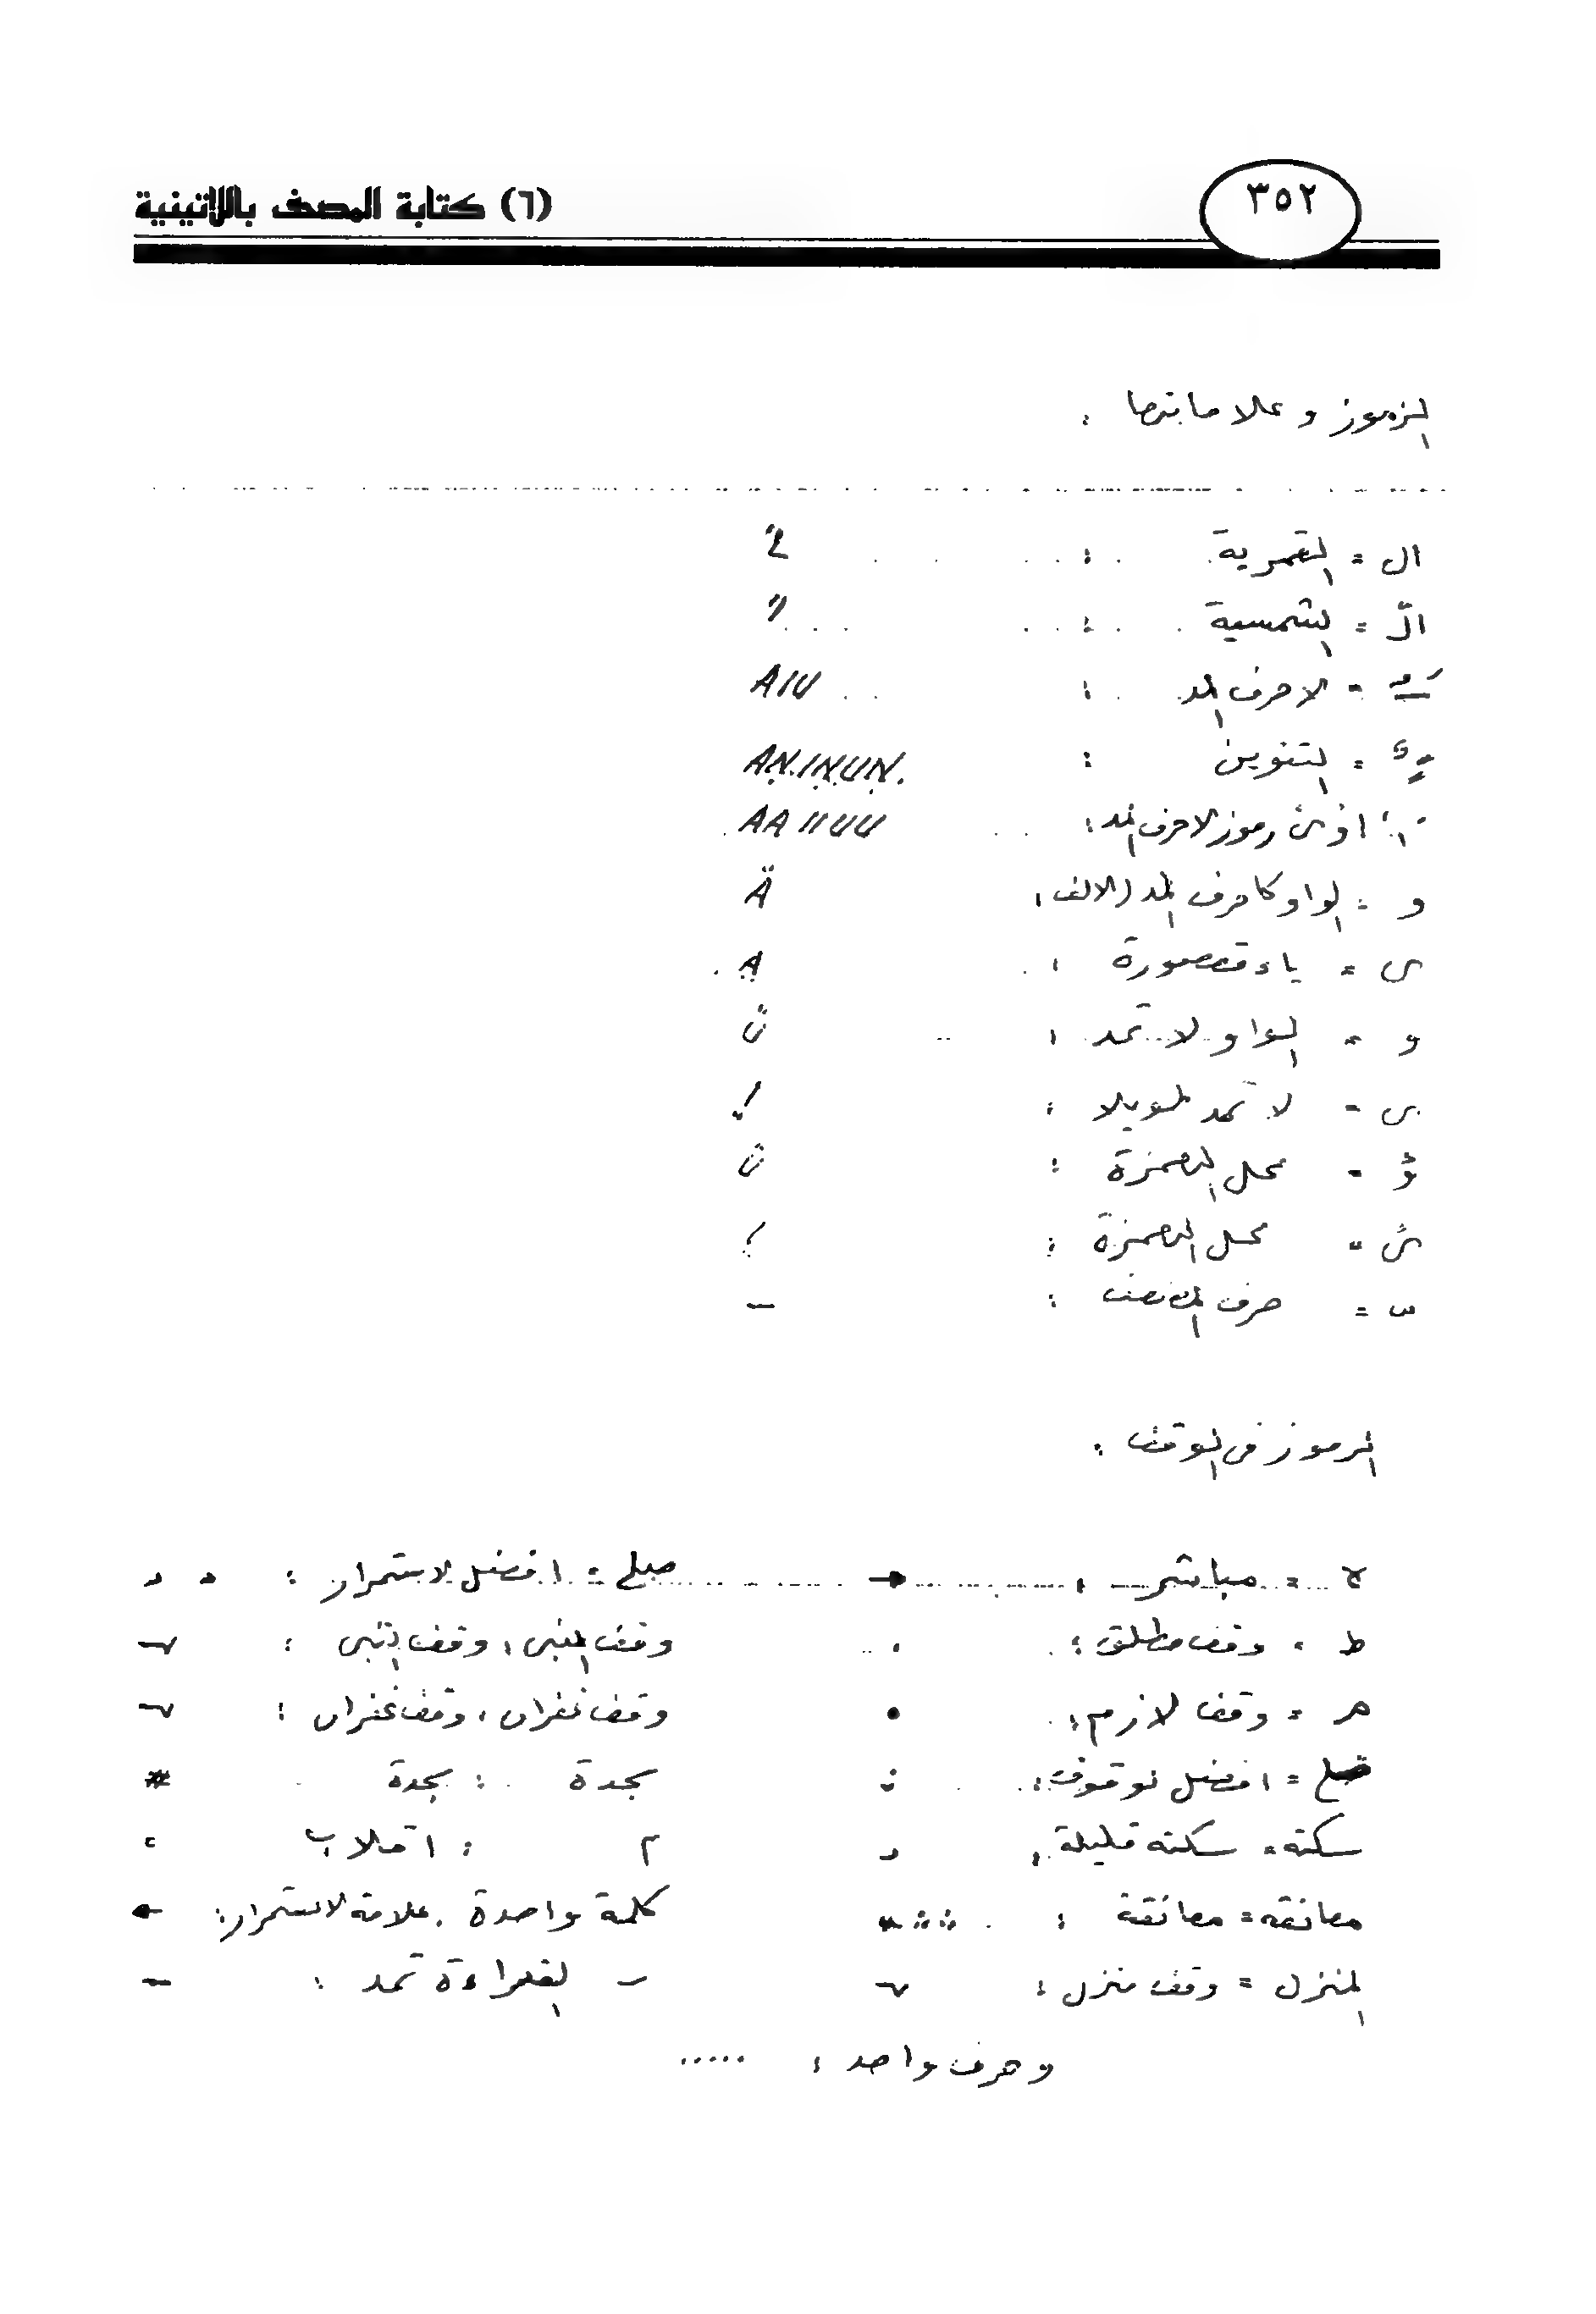 (٦) كتابة المصحف باللاتينية
٣٥٢
الرموز وعلاماتها :
ال = القمرية :
الّ = الشمسية : "
= الاحرف المد : A I U
= التنوين : AN. IN. UN.
رموز الاحرف المد : AA II UU
و = الواو كاحرف المد (الالف : Ä
ى = ياء مقصورة : A
و = الواو لا تمد :
ى = لا تمد طويلا :
ؤ = محل الهمزة :
ئ = محل الهمزة :
= حرف :
الرموز فى الوقف :
لا = مباشر : →
صلى = افضل الاستمرار :
ط = وقف مطلق : .
وقف النبى ، وقف النبى :
هـ = وقف لازم : •
وقف غفران ، وقف غفران :
= افضل توقوف :
سجدة : سجدة #
سكته = سكته قليلة :
م : اقلاب
معانقه = معانقة :
كلمة واحدة . علامة الاستمرار :
المنزل = وقف منزل :
القراءة تمد : –
وحرف واحد : .....